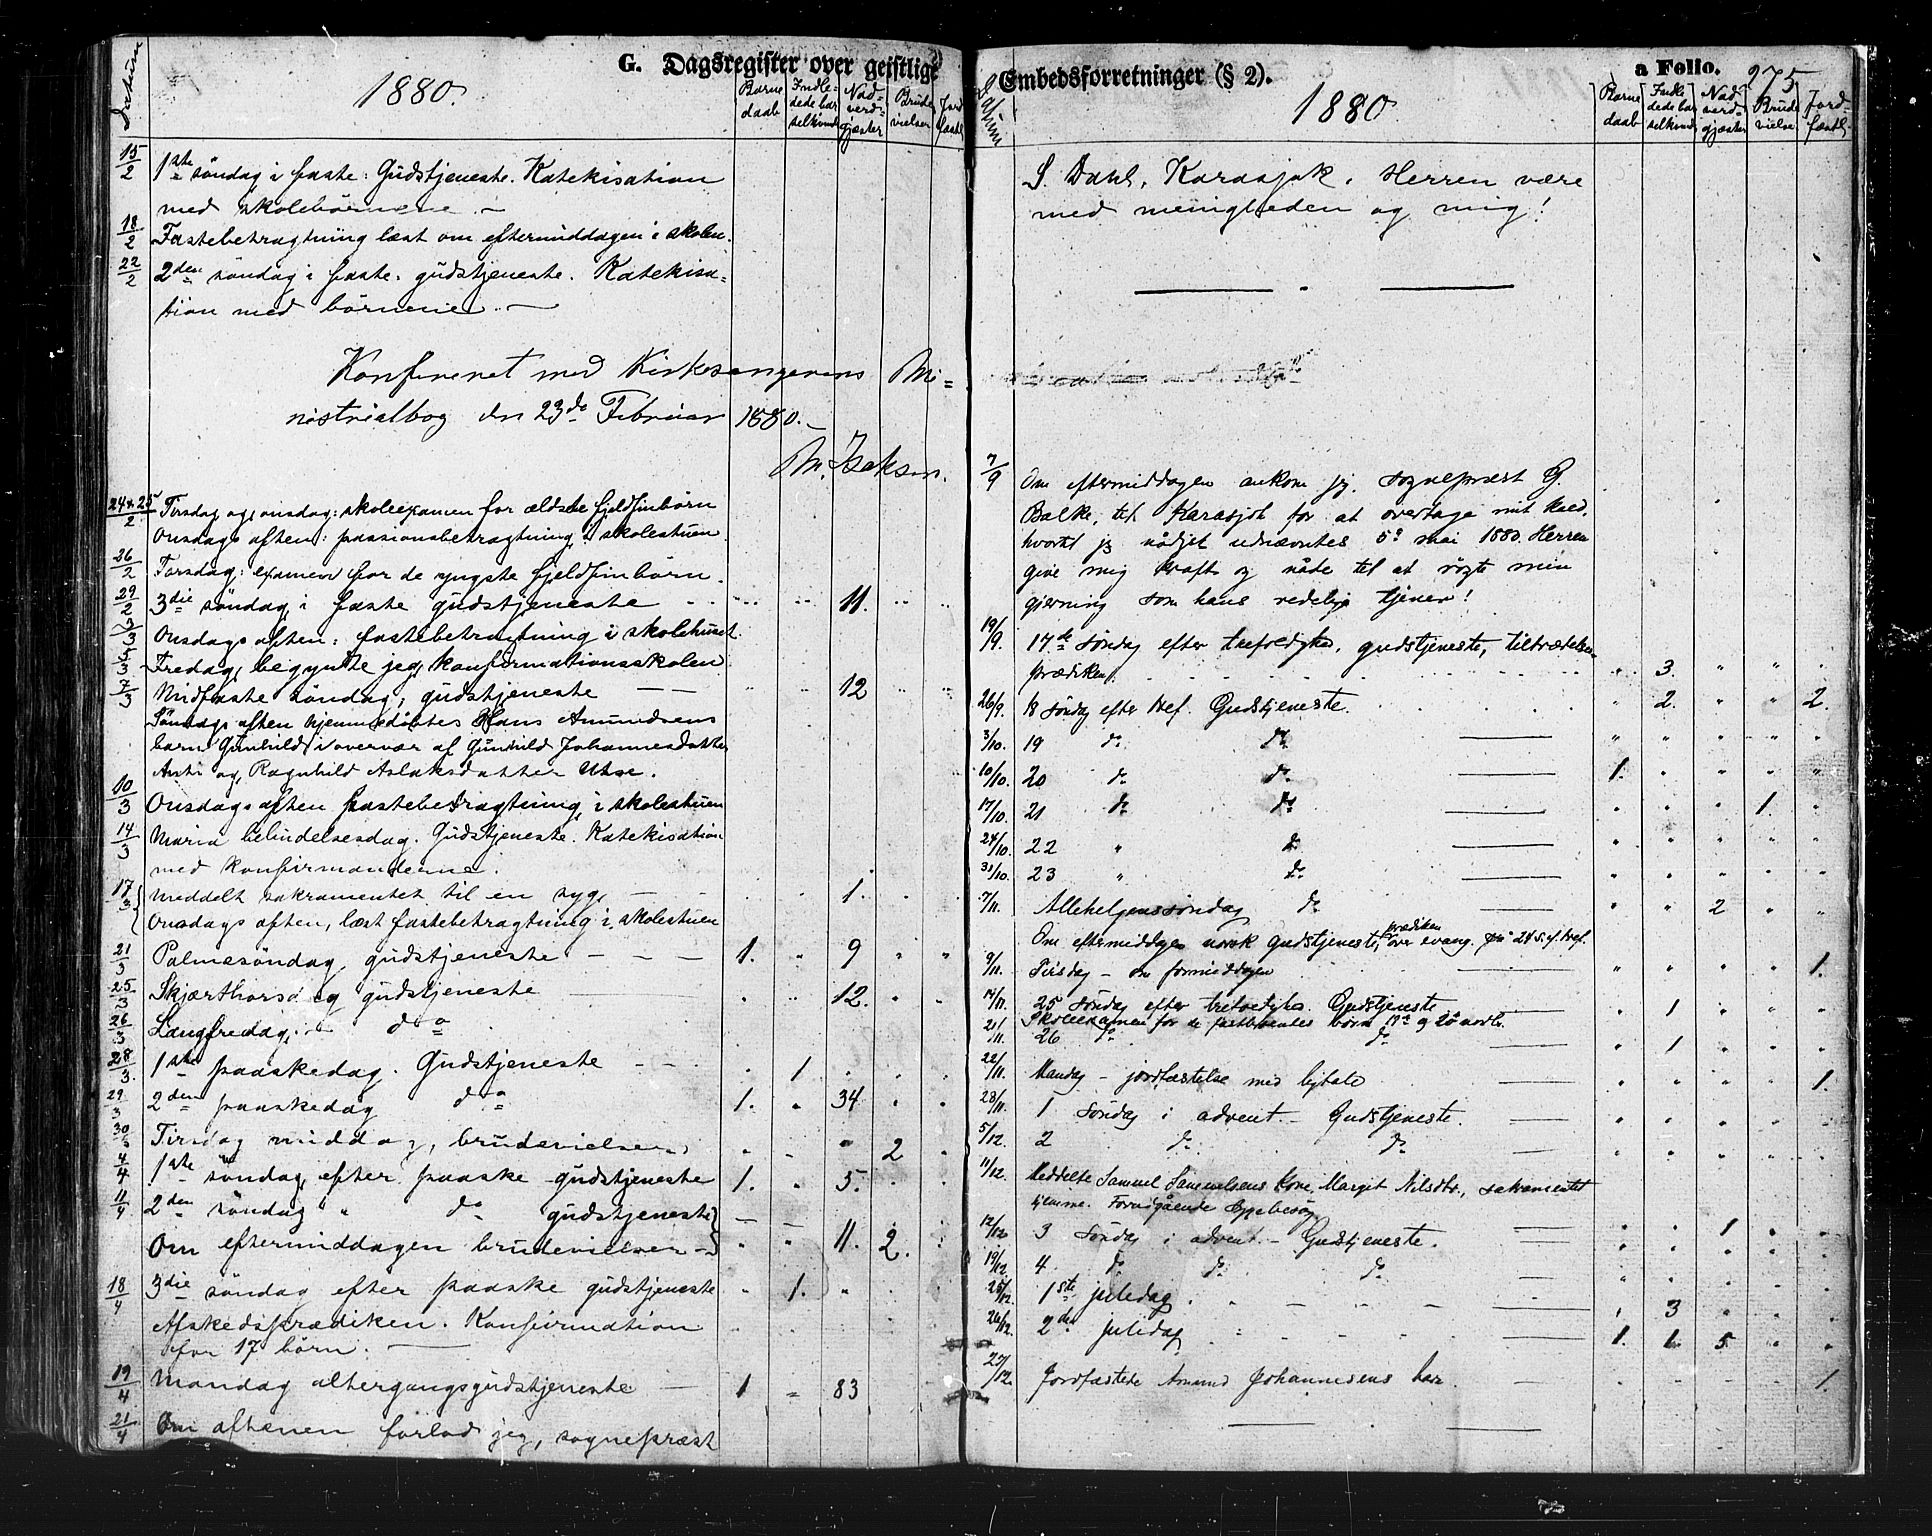 G. Dagsregister over geistlige
1880.
Datum
Barne daab
Indledede barselkoner
Nadverdgjæster
Brudevielser
Jordfæstel.
15/2 1ste söndag i faste: Gudstjeneste. Katekisation
med skolebörnene. —
18/2 Fastebetragtning læst om eftermiddagen i skolen.
22/2 2den söndag i faste. gudstjeneste. Katekisa=
tion med börnene. —
Konfereret med Kirkesangerens Mi=
nistrialbog den 23de Februar 1880. —
M. Isaksen.
24+25/2 Tirsdag og onsdag: skoleexamen for ældste fjeldfinbörn
Onsdags aften: passionsbetragtning i skolestuen
26/2 Torsdag: examen for de yngste fjeldfinbörn.
29/2 3die söndag i faste gudstjeneste 11.
3/3 Onsdags aften: fastebetragtning i skolehuset.
5/3 Fredag, begyndte jeg konfirmationsskolen
7/3 Midfaste söndag, gudstjeneste — — 12
Söndags aften hjemmedöbtes Hans Amundsens
barn Gunhild i overvær af Gunhild Johannesdatter
Anti og Ragnhild Aslaksdatter Utse.
10/3 Onsdags aften fastebetragtning i skolestuen
14/3 Maria bebudelsesdag. Gudstjeneste. Katekisation
med konfirmanderne.
17/3 Meddelt sakramentet til en syg, — — 1.
Onsdags aften, læst fastebetragtning i skolestuen
21/3 Palmesöndag gudstjeneste — — — 1. " 9 " "
25/3 Skjærthorsdag gudstjeneste 12.
26/3 Langfredag. do
28/3 1ste paaskedag. Gudstjeneste — — 1
29/3 2den paaskedag do 1. " 34
30/3 Tirsdag middag, brudevielser 2
4/4 1ste söndag efter paaske gudstjeneste 1. 5.
11/4 2den söndag " do gudstjeneste
Om eftermiddagen brudevielser — 11. 2.
18/4 3die söndag efter paaske gudstjeneste " 1. "
Afskedsprædiken. Konfirmation
for 17 börn. —
19/4 Mandag altergangsgudstjeneste — 1 " 83
21/4 Om aftenen forlod jeg, sogneprest
Embedsforretninger (§ 2).
a Folio.
275
1880
Datum
Barne daab
Indledede barselkoner
Nadverdgjæster
Brudevielse
Jordfæstel.
S. Dahl, Karasjok. Herren være
med menigheden og mig!
7/9 Om eftermiddagen ankom jeg, sogneprest G.
Balke, til Karasjok for at overtage mit kald,
hvortil jeg nådigst udnævntes 5te mai 1880. Herren
give mig kraft og nåde til at røgte min
gjerning som hans redelige tjener!
19/9. 17de söndag efter trefoldighed, gudstjeneste, tiltrædelses-
prædiken. " 3. " " "
26/9. 18 søndag efter tref. Gudstjeneste. " 2. " " 2.
3/10. 19 do do " " " " "
10/10. 20 do do 1. " " " "
17/10. 21 do do " " " 1. "
24/10. 22 " do " " " " "
31/10. 23 " do " " " " "
7/11. Allehelgenssøndag do " " 2 " "
Om eftermiddagen norsk gudstjeneste, prædiken over evang. på 24 s. ef. tref.
9/11. Tirsdag – om formiddagen " " " " 1.
14/11. 25 søndag efter trefoldighed. Gudstjeneste " 1 " " "
Skoleexamen for de fastboendes börn 19de og 20de novbr.
21/11. 26 do do " 1 " " "
22/11. Mandag – jordfæstelse med ligtale " " " " 1.
28/11. 1 søndag i advent. – Gudstjeneste. " " " " "
5/12. 2 do do " " " " "
11/12. Meddelte Samuel Samuelsens kone, Margit Nilsdtr., sakramentet
hjemme. Forudgående sygebesøg. " " 1 " "
12/12 3 Søndag i advent. – Gudstjeneste. " " " " "
19/12. 4 do do do " " " " "
25/12. 1ste juledag. " 3 " " "
26/12. 2den juledag 1. 1. 5. " "
27/12. Jordfæstede Amund Johannesens barn. " " " " 1.